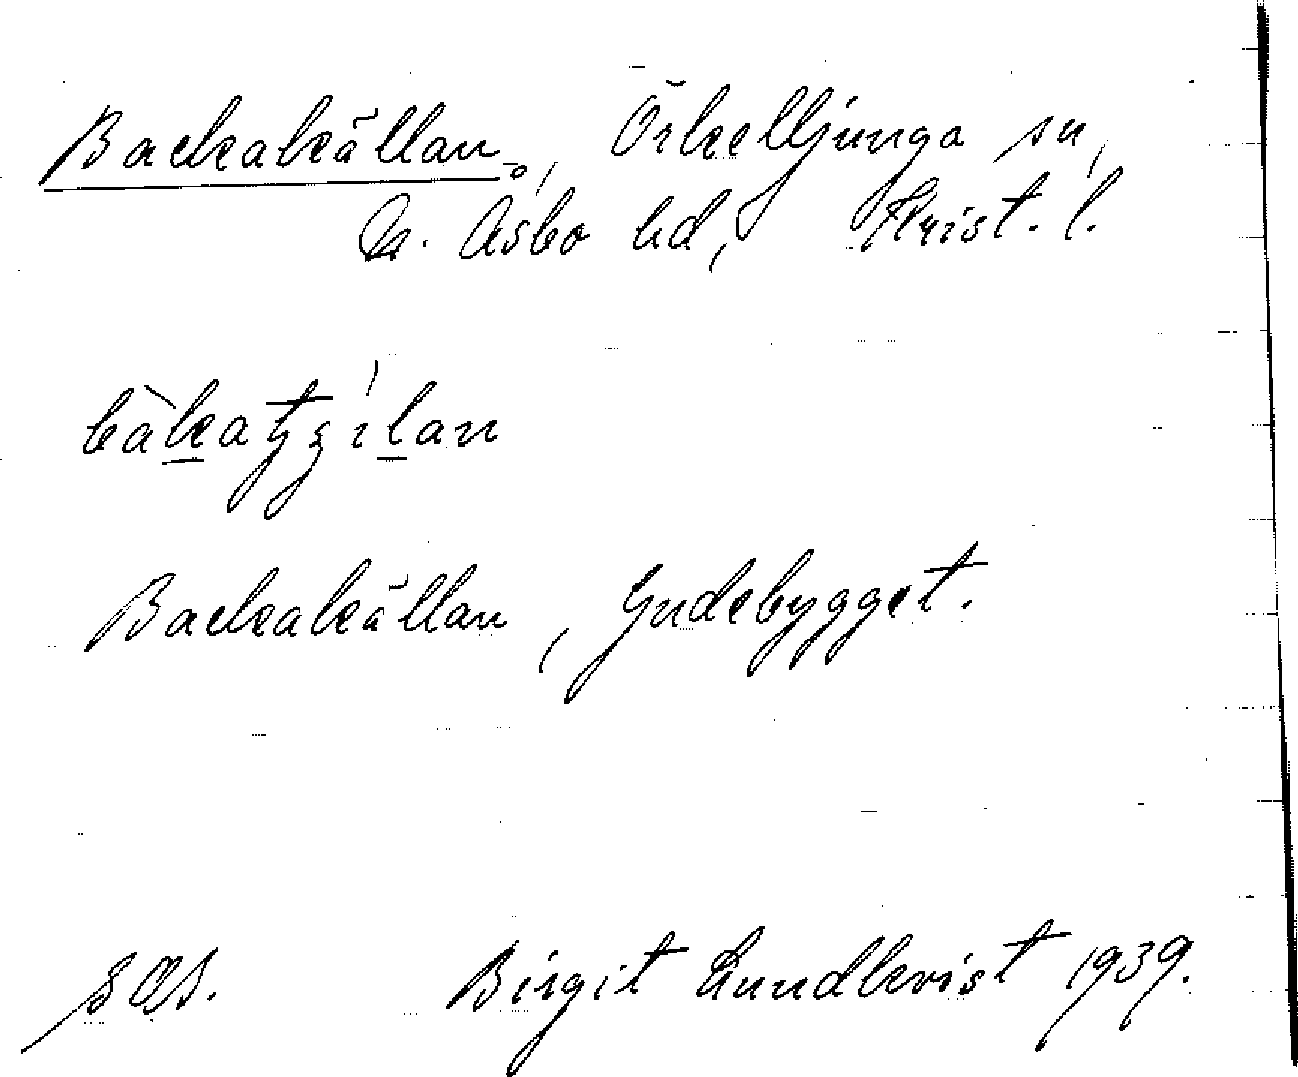 Backakällan, Örkelljunga sn,
N. Åsbo hd, Krist. l.
Backakällan, Gudebygget.
S Birgit Lundkvist 1939.